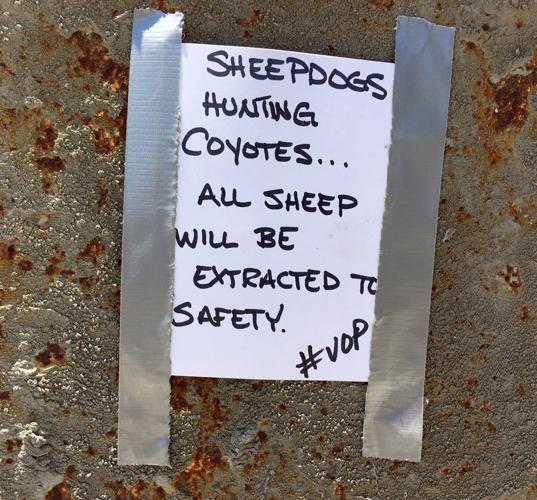 SHEEPDOGS
HUNTING
COYOTES...
ALL SHEEP
WILL BE
EXTRACTED TO
SAFETY.
#VOP